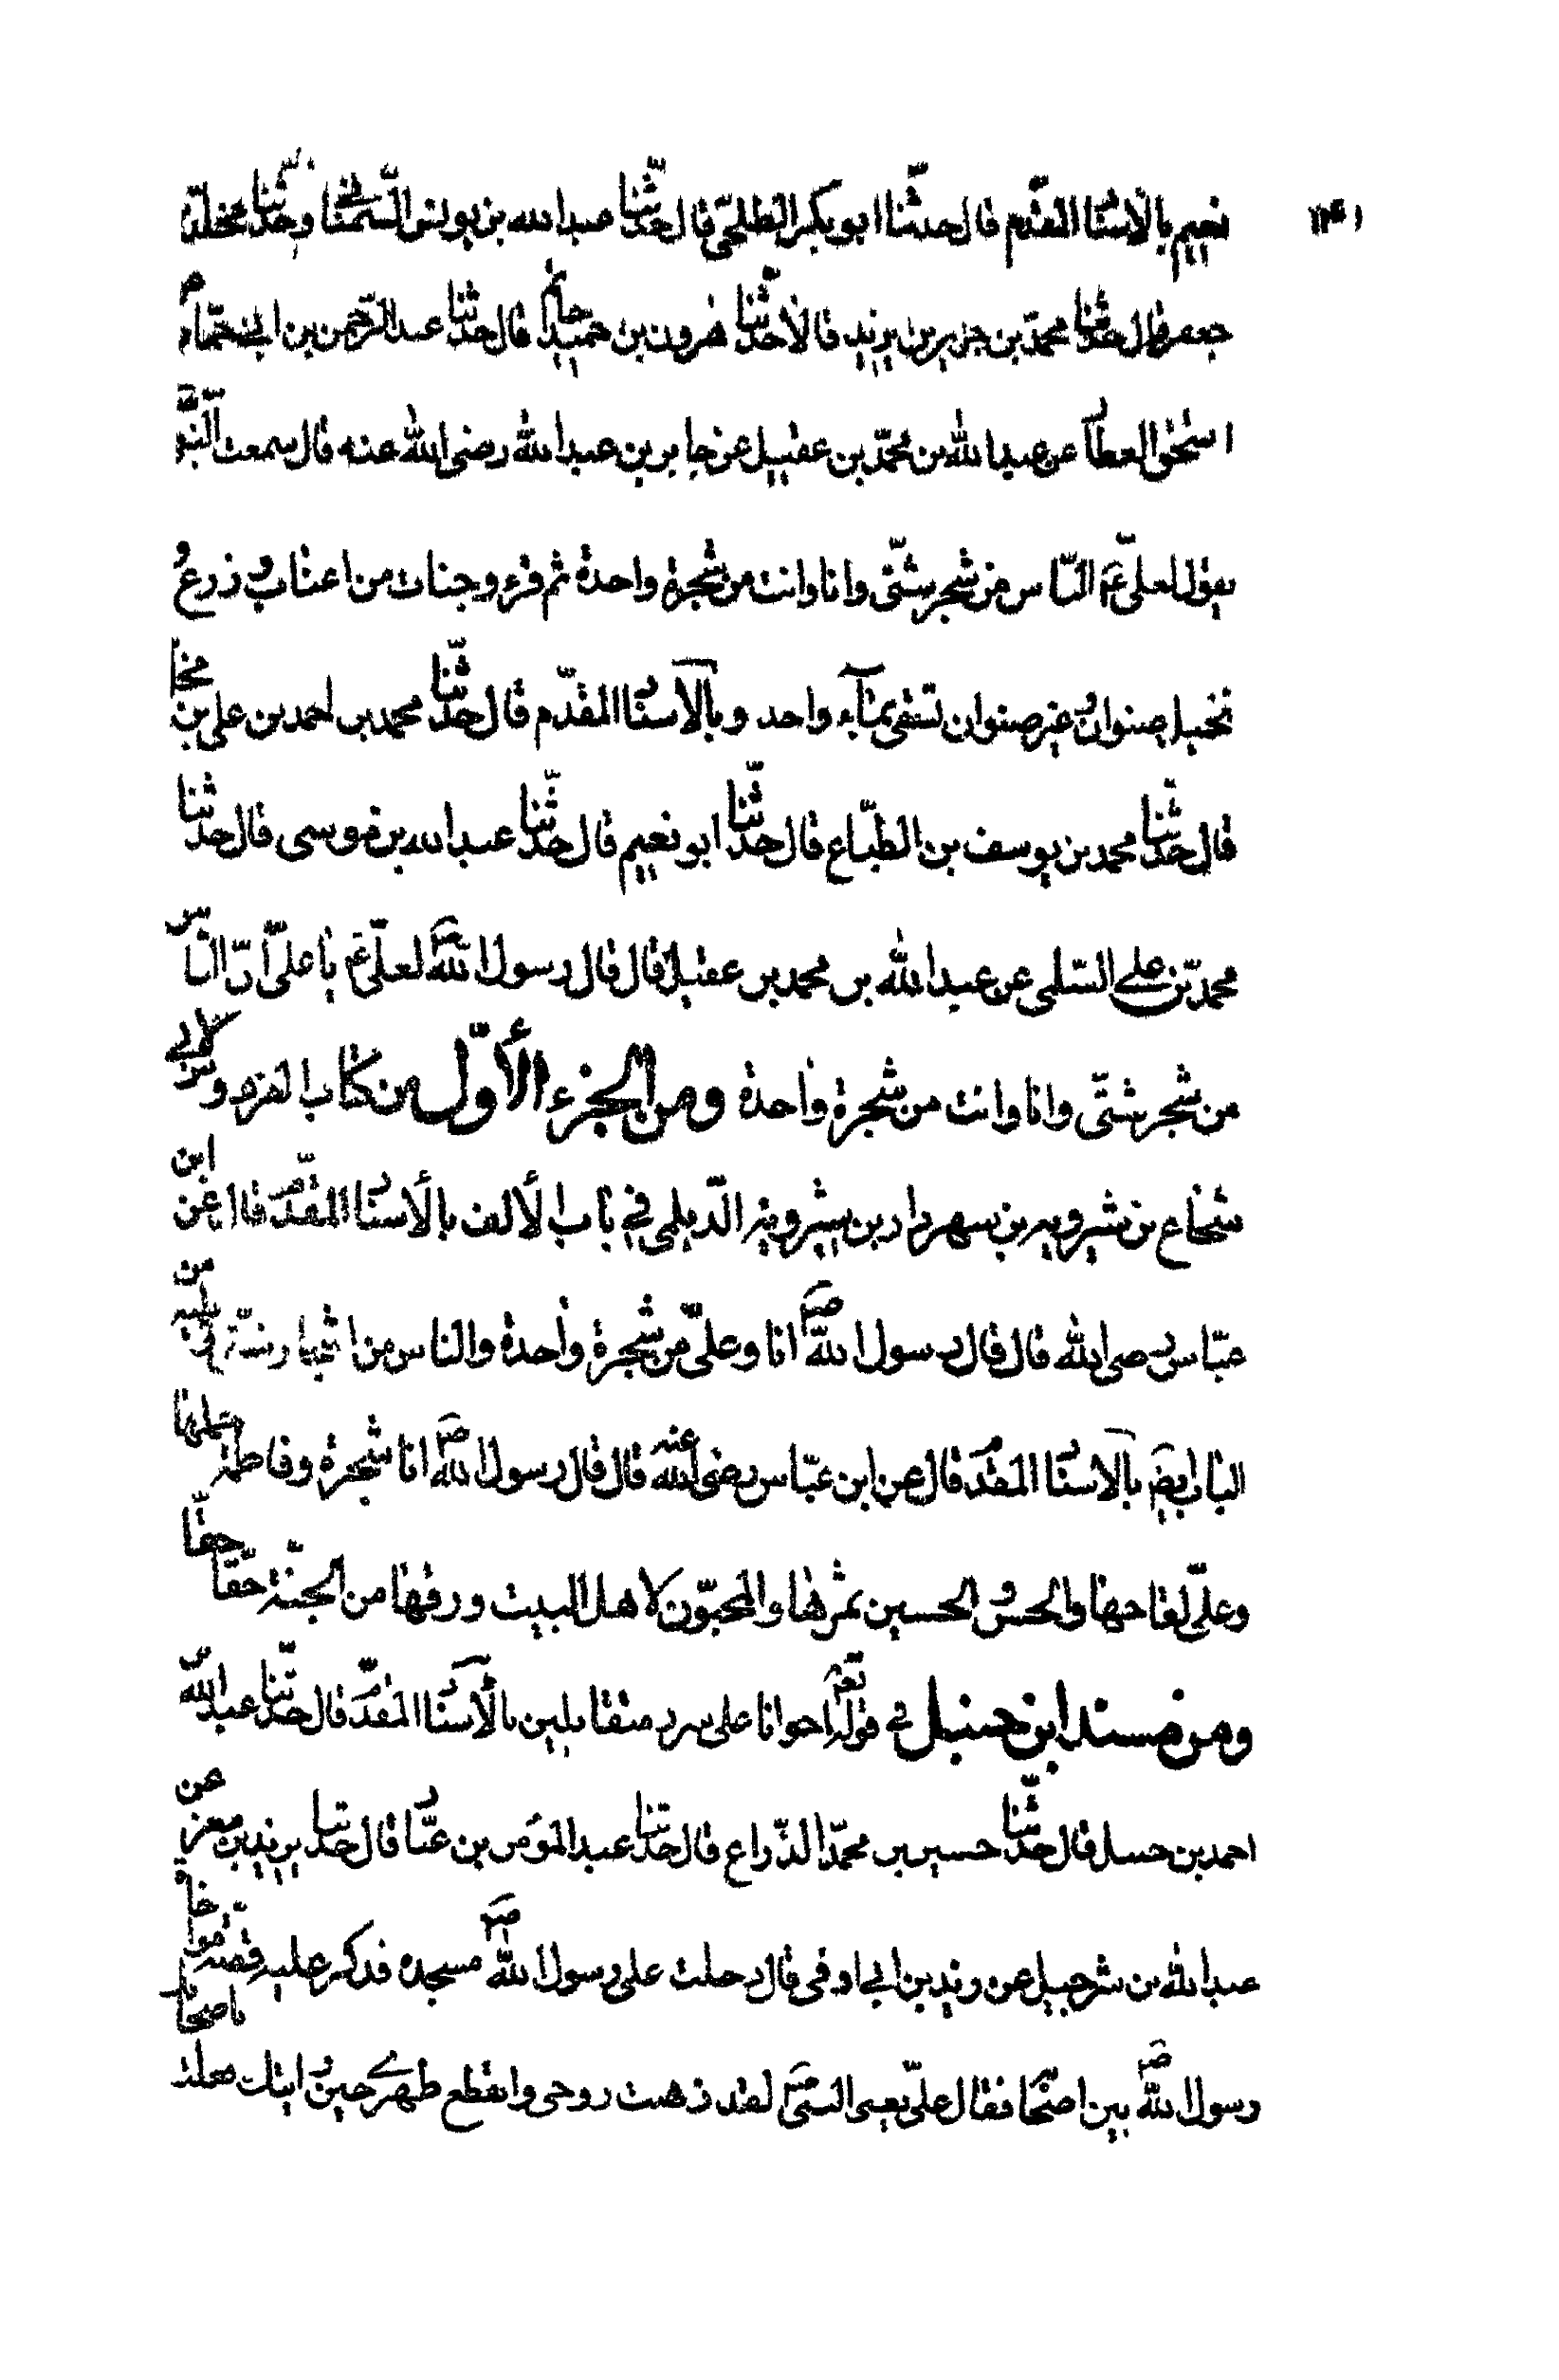 نعيم بالاسناد المقدم قال حدثنا ابو بكر الطلحي قال حدثنا عبد الله بن يونس السمناني وحدثنا مخلد بن
جعفر قال حدثنا محمد بن جرير بن يزيد قالا حدثنا هرون بن حاتم قال حدثنا عبد الرحمن بن ابي حماد
اسحق العطار عن عبد الله بن محمد بن عقيل عن جابر بن عبد الله رضي الله عنه قال سمعت النبي
يقول لعلي ع م الناس من شجر شتى وانا وانت من شجرة واحدة ثم قرء وجنات من اعناب وزرع و
نخيل صنوان وغير صنوان تسقى بمآء واحد وبالاسناد المقدم قال حدثنا محمد بن احمد بن علي بن مخلد
قال حدثنا محمد بن يوسف بن الطباع قال حدثنا ابو نعيم قال حدثنا عبد الله بن موسى قال حدثنا
محمد بن علي السلمي عن عبد الله بن محمد بن عقيل قال قال رسول الله ص لعلي ع م يا علي ان الناس
من شجر شتى وانا وانت من شجرة واحدة ومن الجزء الأول من كتاب الفردوس لابي
شجاع بن شيرويه بن شهردار بن شيرويه الديلمي في باب الألف بالأسناد المقدم قال عن ابن
عباس رضي الله قال قال رسول الله ص انا وعلي من شجرة واحدة والناس من اشجار شتى
الباب ايضم بالاسناد المقدم قال عن ابن عباس رضي الله عنه قال قال رسول الله ص انا شجرة وفاطمة حملها
وعلي لقاحها والحسن والحسين ثمرها والمحبون لاهل البيت ورقها من الجنة حقا حقا
ومن مسند ابن حنبل في قوله تعم اخوانا على سرر متقابلين بالأسناد المقدم قال حدثنا عبد الله بن
احمد بن حنبل قال حدثنا حسين بن محمد الذراع قال حدثنا عبد المؤمن بن عباد قال حدثنا يزيد بن معن عن
عبد الله بن شرحبيل عن زيد بن ابي اوفى قال دخلت على رسول الله ص مسجده فذكر عليه قصة مواخاة
رسول الله ص بين اصحابه فقال علي يعني للنبي ص لقد ذهبت روحي وانقطع ظهري حين رايتك فعلت باصحابك